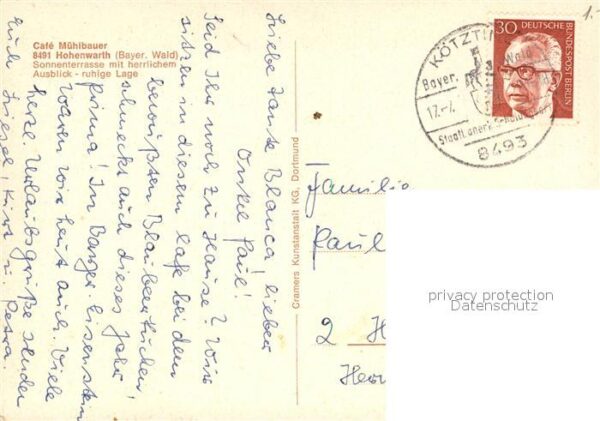 Café Mühlbauer
8491 Hohenwarth (Bayer. Wald)
Sonnenterrasse mit herrlichem
Ausblick - ruhige Lage
Liebe Tante Blanca! lieber
Onkel Paul!
Seid Ihr noch zu Hause? Wir
sitzen in diesem Cafe bei dem
bewußten Blaubeerkuchen,
schmeckt auch dieses Jahr
prima! In Bayer. Eisenstein
waren wir heut auch. Viele
herzl. Urlaubsgrüße senden
Euch Liesel, Kurt u. Petra.
Cramers Kunstanstalt KG, Dortmund
1.-
30 DEUTSCHE BUNDESPOST BERLIN
KÖTZTI
Bayer. Wald
17.-7.
Staatl. anerk.
8493
Familie
Paul
2 H
Herr
privacy protection
Datenschutz